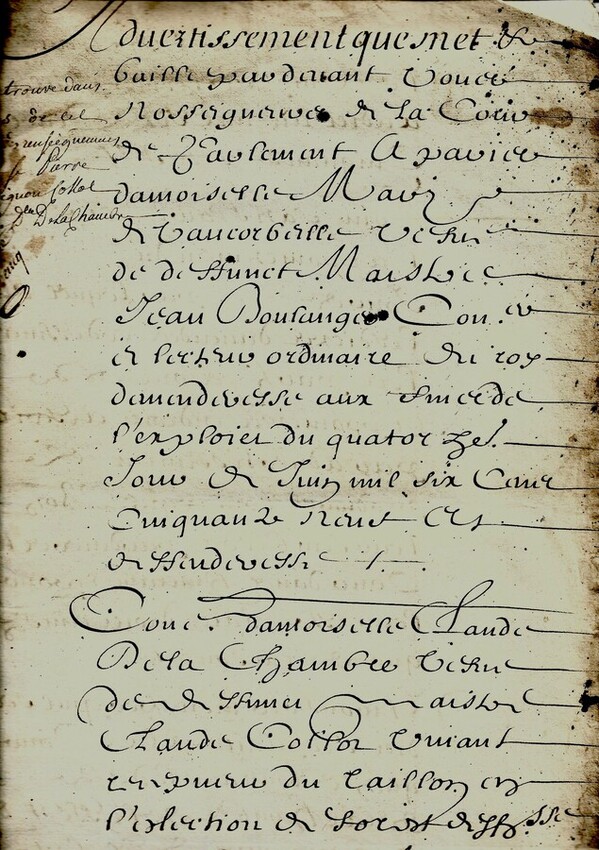 Advertissement que met &
baille pardevant vous
Nosseigneurs de la Cour
de Parlement A paris
damoiselle Marie
de Vaucorbeille Veufve
de deffunct Maistre
Jean Boulanger Con.er
et lecteur ordinaire du roy
demanderesse aux fins de
l'exploict du quatorze
Jour de Juin mil six Cens
Cinquante neuf Et
deffenderesse
Conte damoiselle Claude
De la Chambre Veufve
de deffunct maistre
Claude Collot vivant
receveur du taillon en
l'eslection de
trouve dans
de ce
renseignemens
Pierre
Collot
De la Chambre